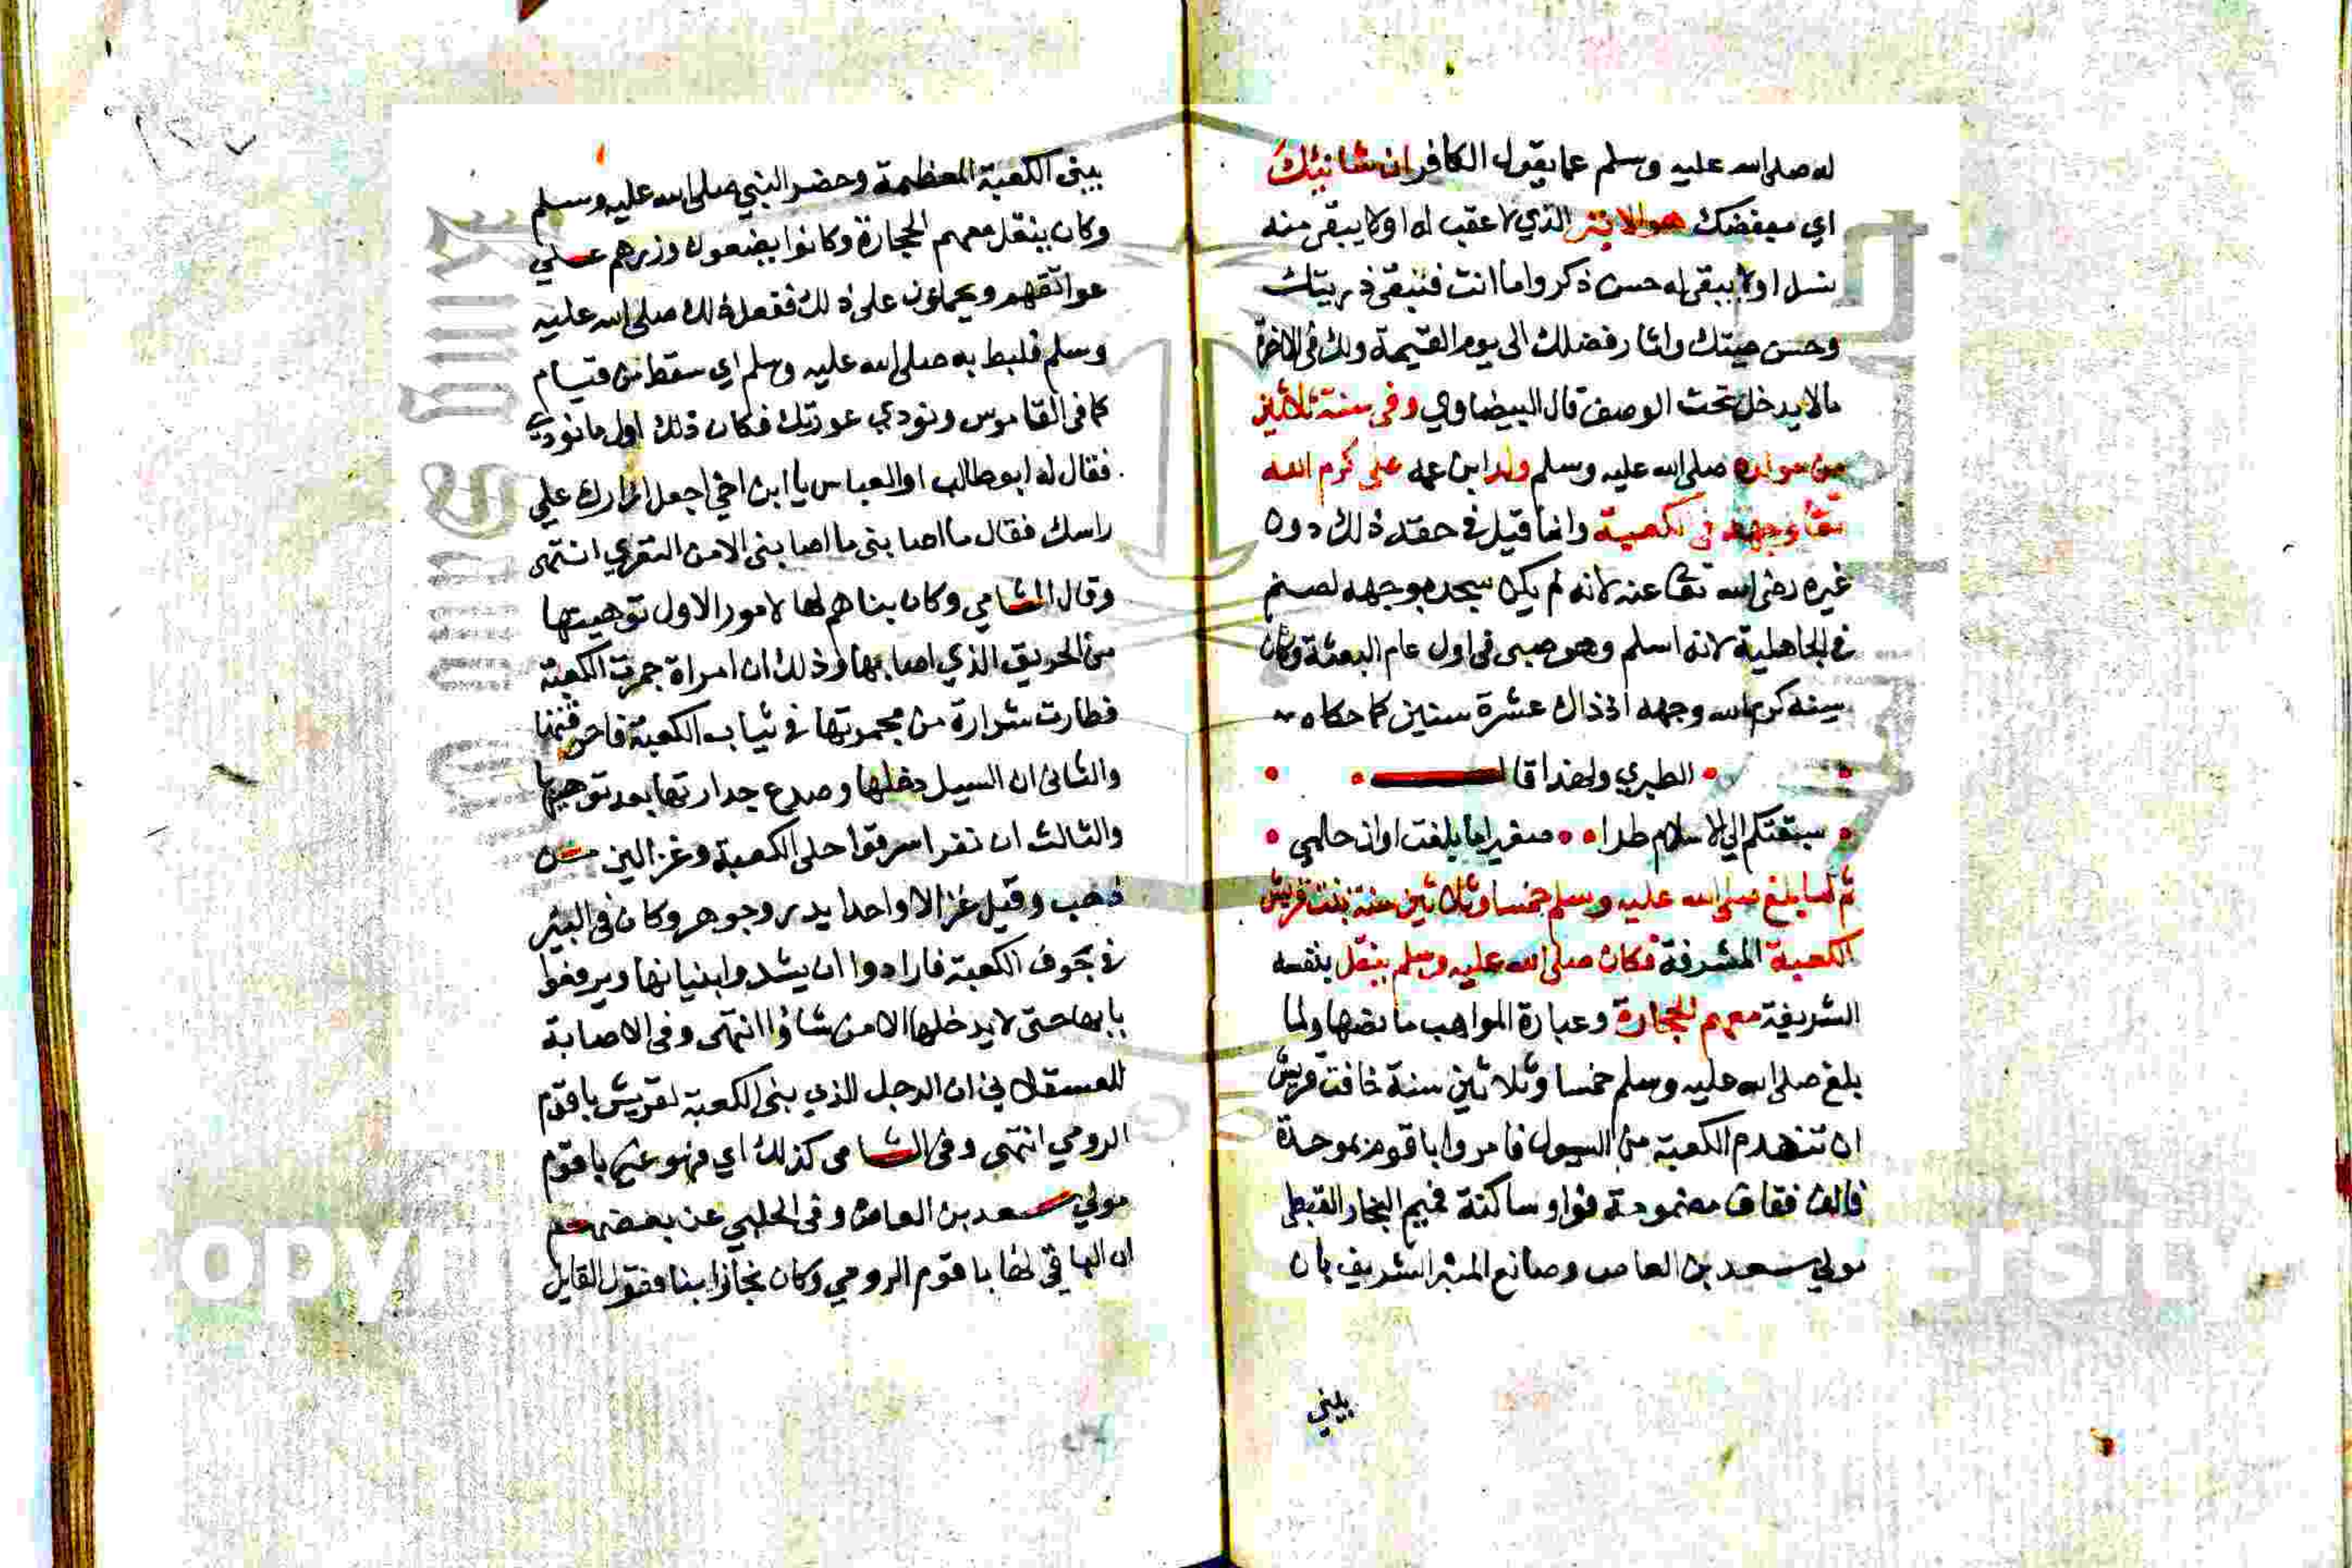 له صلى الله عليه وسلم عما يقول الكافر ان شانئك
اي مبغضك هو الابتر الذي لا عقب له اولا يبقى منه
نسل اولا يبقى له حسن ذكر واما انت فتبقى ذريتك
وحسن صيتك واثار فضلك الى يوم القيمة ولك في الاخرة
مالا يدخل تحت الوصف قال البيضاوي وفي سنة ثلاثين
من مولده صلى الله عليه وسلم ولد ابن عمه على كرم الله
تعا وجهه في الكعبة وانما قيل في حقه ذلك دون
غيره رضى الله تعا عنه لانه لم يكن سجد بوجهه لصنم
في الجاهلية لانه اسلم وهو صبى في اول عام البعثة وكان
سنه كرم الله وجهه اذ ذاك عشرة سنين كما حكاه
الطبري ولهذا قال
سبقتكم الي الاسلام طرا صغيرا ما بلغت اوان حلمي
ثم لما بلغ صلى الله عليه وسلم خمسا وثلاثين سنة بنت قريش
الكعبة المشرفة فكان صلى الله عليه وسلم ينقل بنفسه
الشريفة معهم الحجارة وعبارة المواهب ما نصها ولما
بلغ صلى الله عليه وسلم خمسا وثلاثين سنة خافت قريش
ان تنهدم الكعبة من السيول فامروا باقوم بموحدة
فالف فقاف مضمومة فواو ساكنة فميم النجار القبطي
مولي سعد بن العاص وصانع المنبر الشريف بان
يبني
يبنى الكعبة المعظمة وحضر النبي صلى الله عليه وسلم
وكان ينقل معهم الحجارة وكانوا يضعون وزرهم علي
عواتقهم ويحملون على ذلك ففعل ذلك صلى الله عليه
وسلم فلبط به صلى الله عليه وسلم اي سقط من قيام
كما في القاموس ونودي عورتك فكان ذلك اول ما نودي
فقال له ابو طالب او العباس يا ابن اخي اجعل ازارك علي
راسك فقال ما اصابنى ما اصابنى الا من التعري انتهى
وقال الشامي وكان بناهم لها لامور الاول توهيتها
من الحريق الذي اصابها وذلك ان امراة جمرت الكعبة
فطارت شرارة من مجمرتها في ثياب الكعبة
والثانى ان السيل دخلها وصدع جدارتها بعد توهيتها
والثالث ان نفرا سرقوا حلى الكعبة وغزالين من
ذهب وقيل غزالا واحدا بدر وجوهر وكان في البئر
في جوف الكعبة فارادوا ان يشدوا بنيانها ويرفعوا
بابها حتى لا يدخلها الا من شاؤا انتهى وفي الاصابة
للعسقلاني ان الرجل الذي بنى الكعبة لقريش باقوم
الرومي انتهى وفي الشامى كذلك اي فهو عنه باقوم
مولي سعد بن العاص وفي الحلبي عن بعضهم
ان الباني لها باقوم الرومي وكان نجارا بنا فقول القايل